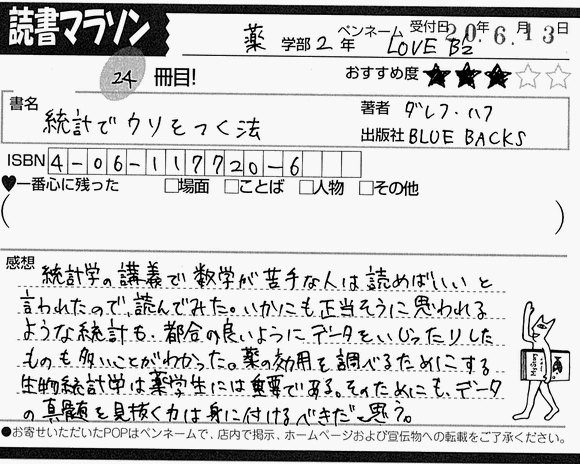 読書マラソン
薬 学部 2 年 ペンネーム LOVE B'z 受付日 20年 6月 13日
24 冊目! おすすめ度 ★★★☆☆
書名 統計でウソをつく法
著者 ダレフ・ハフ
出版社 BLUE BACKS
ISBN 4-06-117720-6
♥一番心に残った □場面 □ことば □人物 □その他
( )
感想 統計学の講義で数学が苦手な人は読めばいいと
言われたので、読んでみた。いかにも正当そうに思われる
ような統計も、都合の良いようにデータをいじったりした
ものも多いことがわかった。薬の効用を調べるためにする
生物統計学は薬学生には重要である。そのためにも、データ
の真髄を見抜く力は身に付けるべきだと思う。
●お寄せいただいたPOPはペンネームで、店内で掲示、ホームページおよび宣伝物への転載をご了承ください。